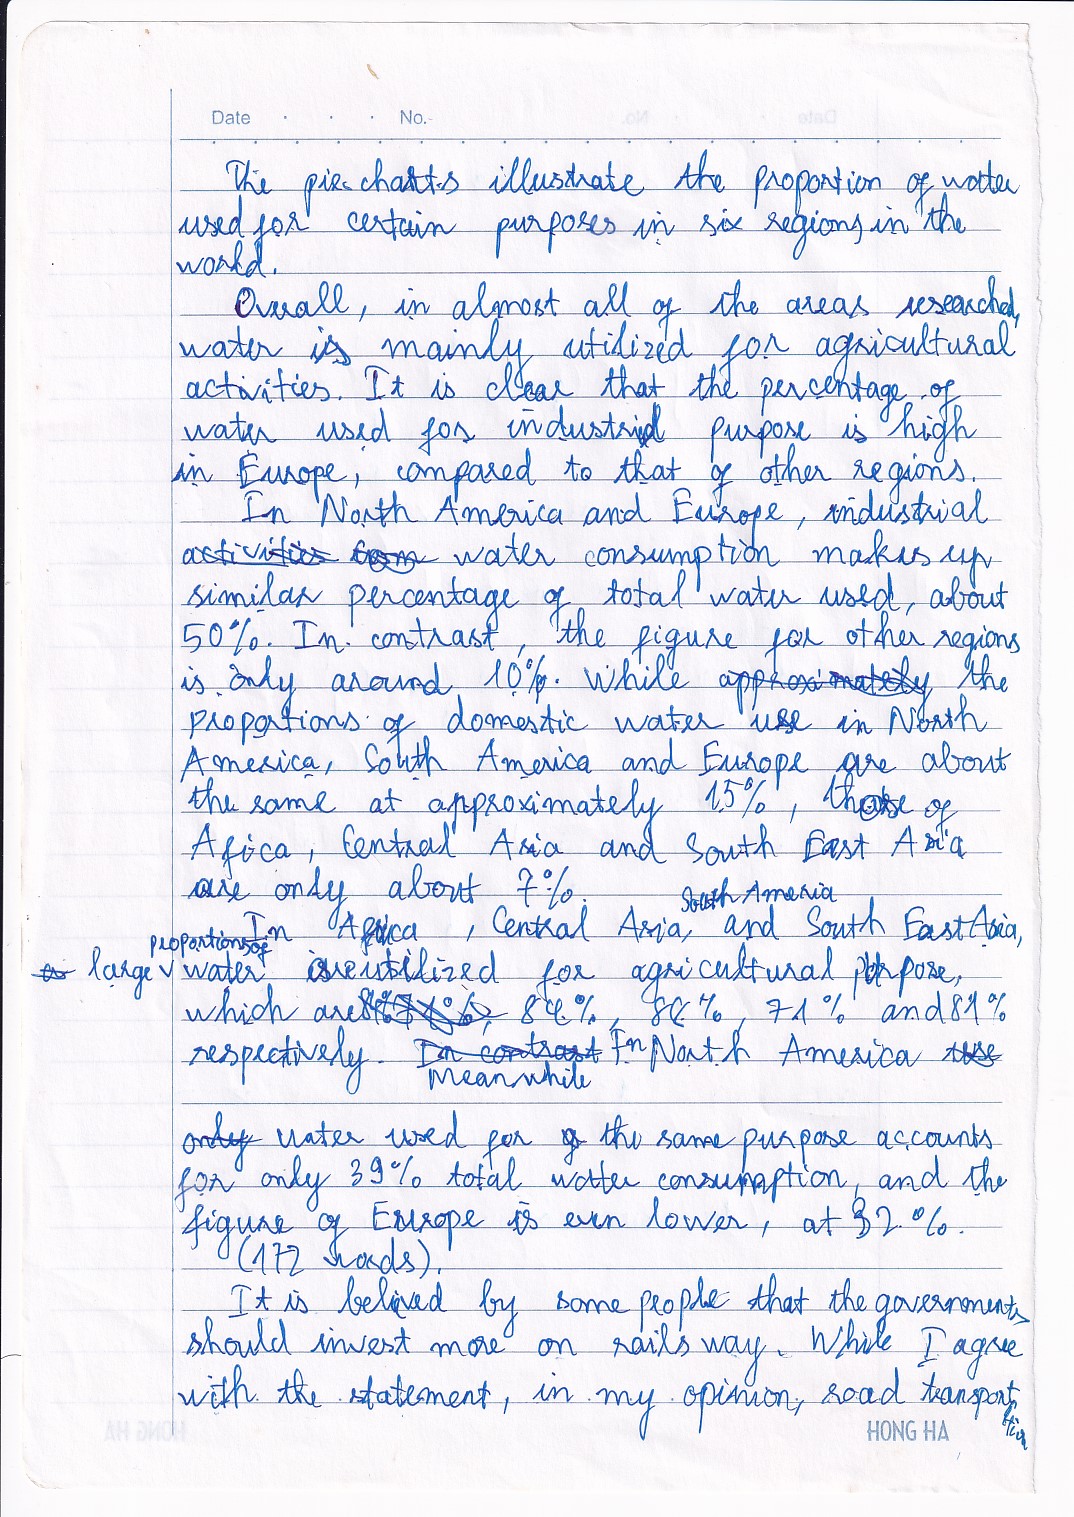 Date . . . No.
The pie charts illustrate the proportion of water
used for certain purposes in six regions in the
world.
Overall, in almost all of the areas researched,
water is mainly utilized for agricultural
activities. It is clear that the percentage of
water used for industrial purpose is high
in Europe, compared to that of other regions.
In North America and Europe, industrial
activities water consumption makes up
similar percentage of total water used, about
50%. In contrast, the figure for other regions
is only around 10%. While approximately the
proportions of domestic water use in North
America, South America and Europe are about
the same at approximately 15%, those of
Africa, Central Asia and South East Asia
are only about 7%.
South America
In Africa, Central Asia, and South East Asia,
proportions of
large water are utilized for agricultural purpose,
which are 84%, 88%, 71% and 81%
respectively. In contrast In North America
Meanwhile
only water used for the same purpose accounts
for only 39% total water consumption, and the
figure of Europe is even lower, at 32%.
(172 words).
It is belived by some people that the governments
should invest more on rails way. While I agree
with the statement, in my opinion, road transport
tion
HONG HA